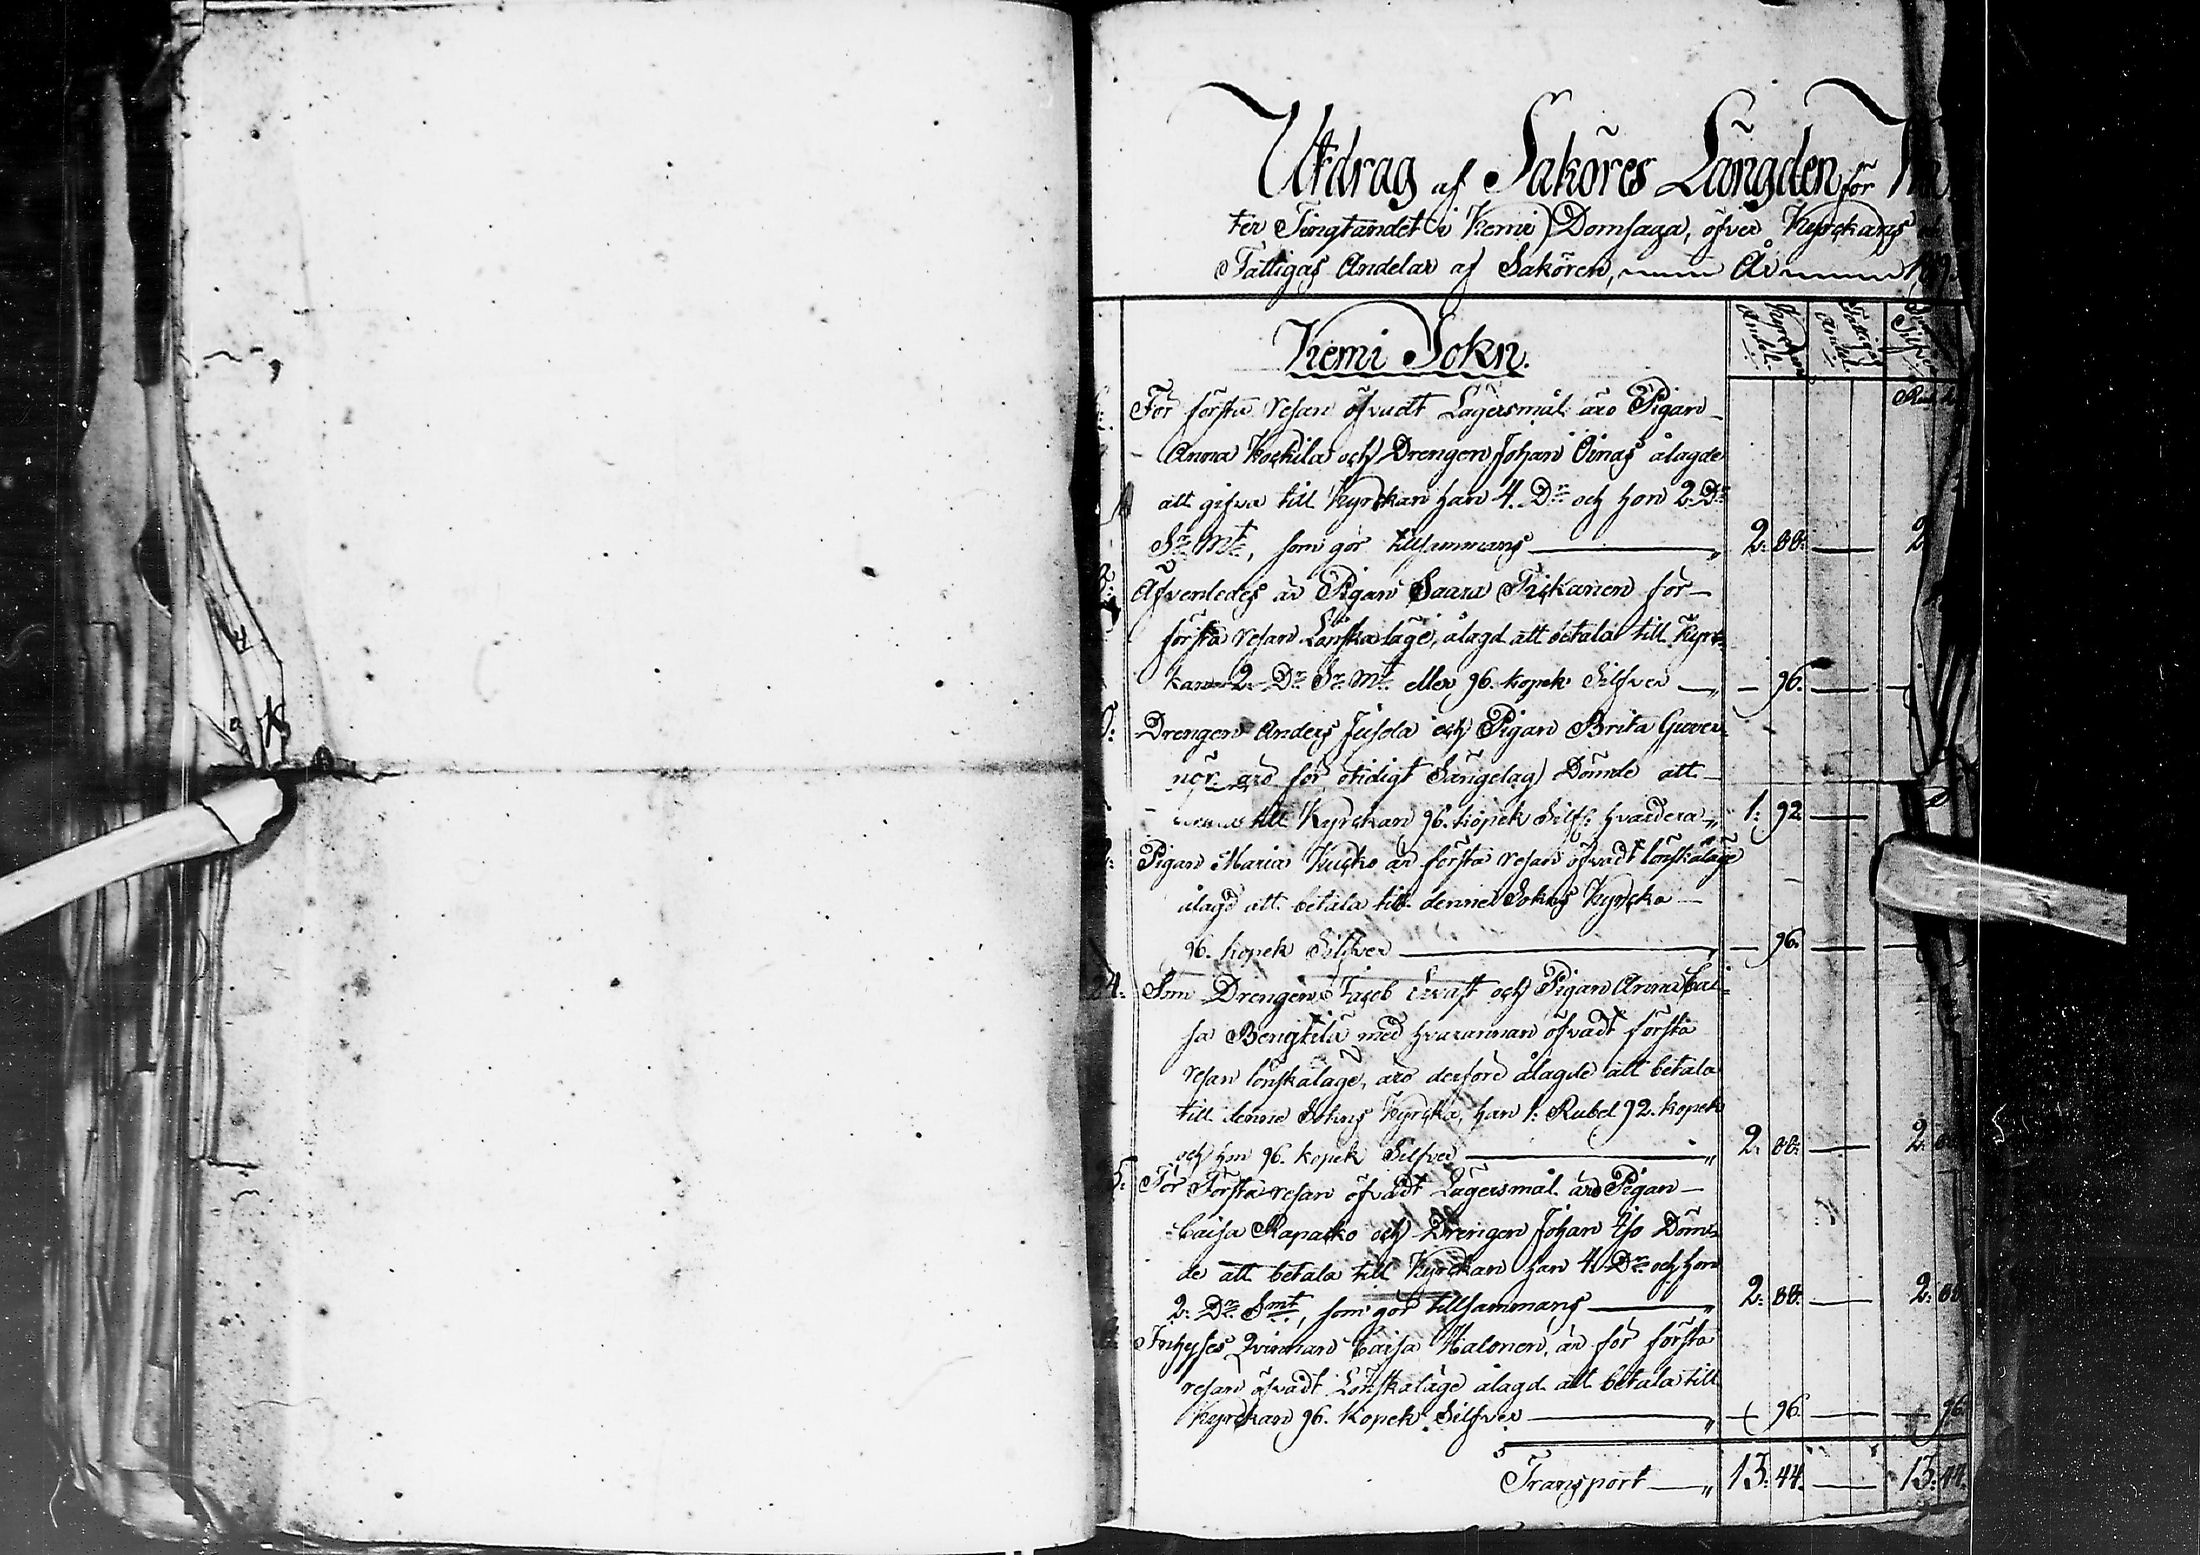 Utdrag af Saköres Längden för
ter Tingtandet i Kemi Domsaga, öfver Kyrckans
Fattigas Andelar af Saköre, År
Kemi Sokn.
Kyrckans Andel.
Fattigas Andel.
För första resan öfvadt Lägersmål äro Pigan
Anna Kockila och Drengen Johan Oinas ålagde
att gifva till Kyrckan han 4. Dr och hon 2. Dr
Sr. Mt, som gör tillsammans — 2: 88: — 2
Äfvenledes är Pigan Saara Tickanen för
första resan Lönskaläge, ålagd att betala till Kyrc-
kan 2. Dr Sr. Mt. eller 96. kopek Silfver — 96. —
Drengen Anders Jusola och Pigan Brita Guver-
nör äro för otidigt Sängelag Dömde att
till Kyrckan 96. kopek Silfr hvardera 1: 92 —
Pigan Maria Kucko är första resan öfvadt lönskaläge
ålagd att betala till denne Sokns Kyrcka
96. kopek Silfver — 96. —
24. Som Drengen Jacob och Pigan Anna Cai-
sa Bengtila med hvarannan öfvadt första
resan lönskaläge, äro derföre ålagde att betala
till denne Sokns Kyrcka, han 1. Rubel 92. kopek
och hon 96. kopek Silfver — 2: 88: — 2: 88
5. För Första resan öfvadt Lägersmål äro Pigan
Caisa Rapacko och Drengen Johan Iso Döm-
de att betala till Kyrckan han 4. Dr och hon
2. Dr Smt, som gör tillsammans — 2: 88: — 2: 88
Inhyses Qvinnan Caisa Halonen, är för första
resan öfvadt Lönskaläge ålagd att betala till
Kyrckan 96. Kopek Silfver — 96. — 96.
Transport — 13: 44. — 13: 44.